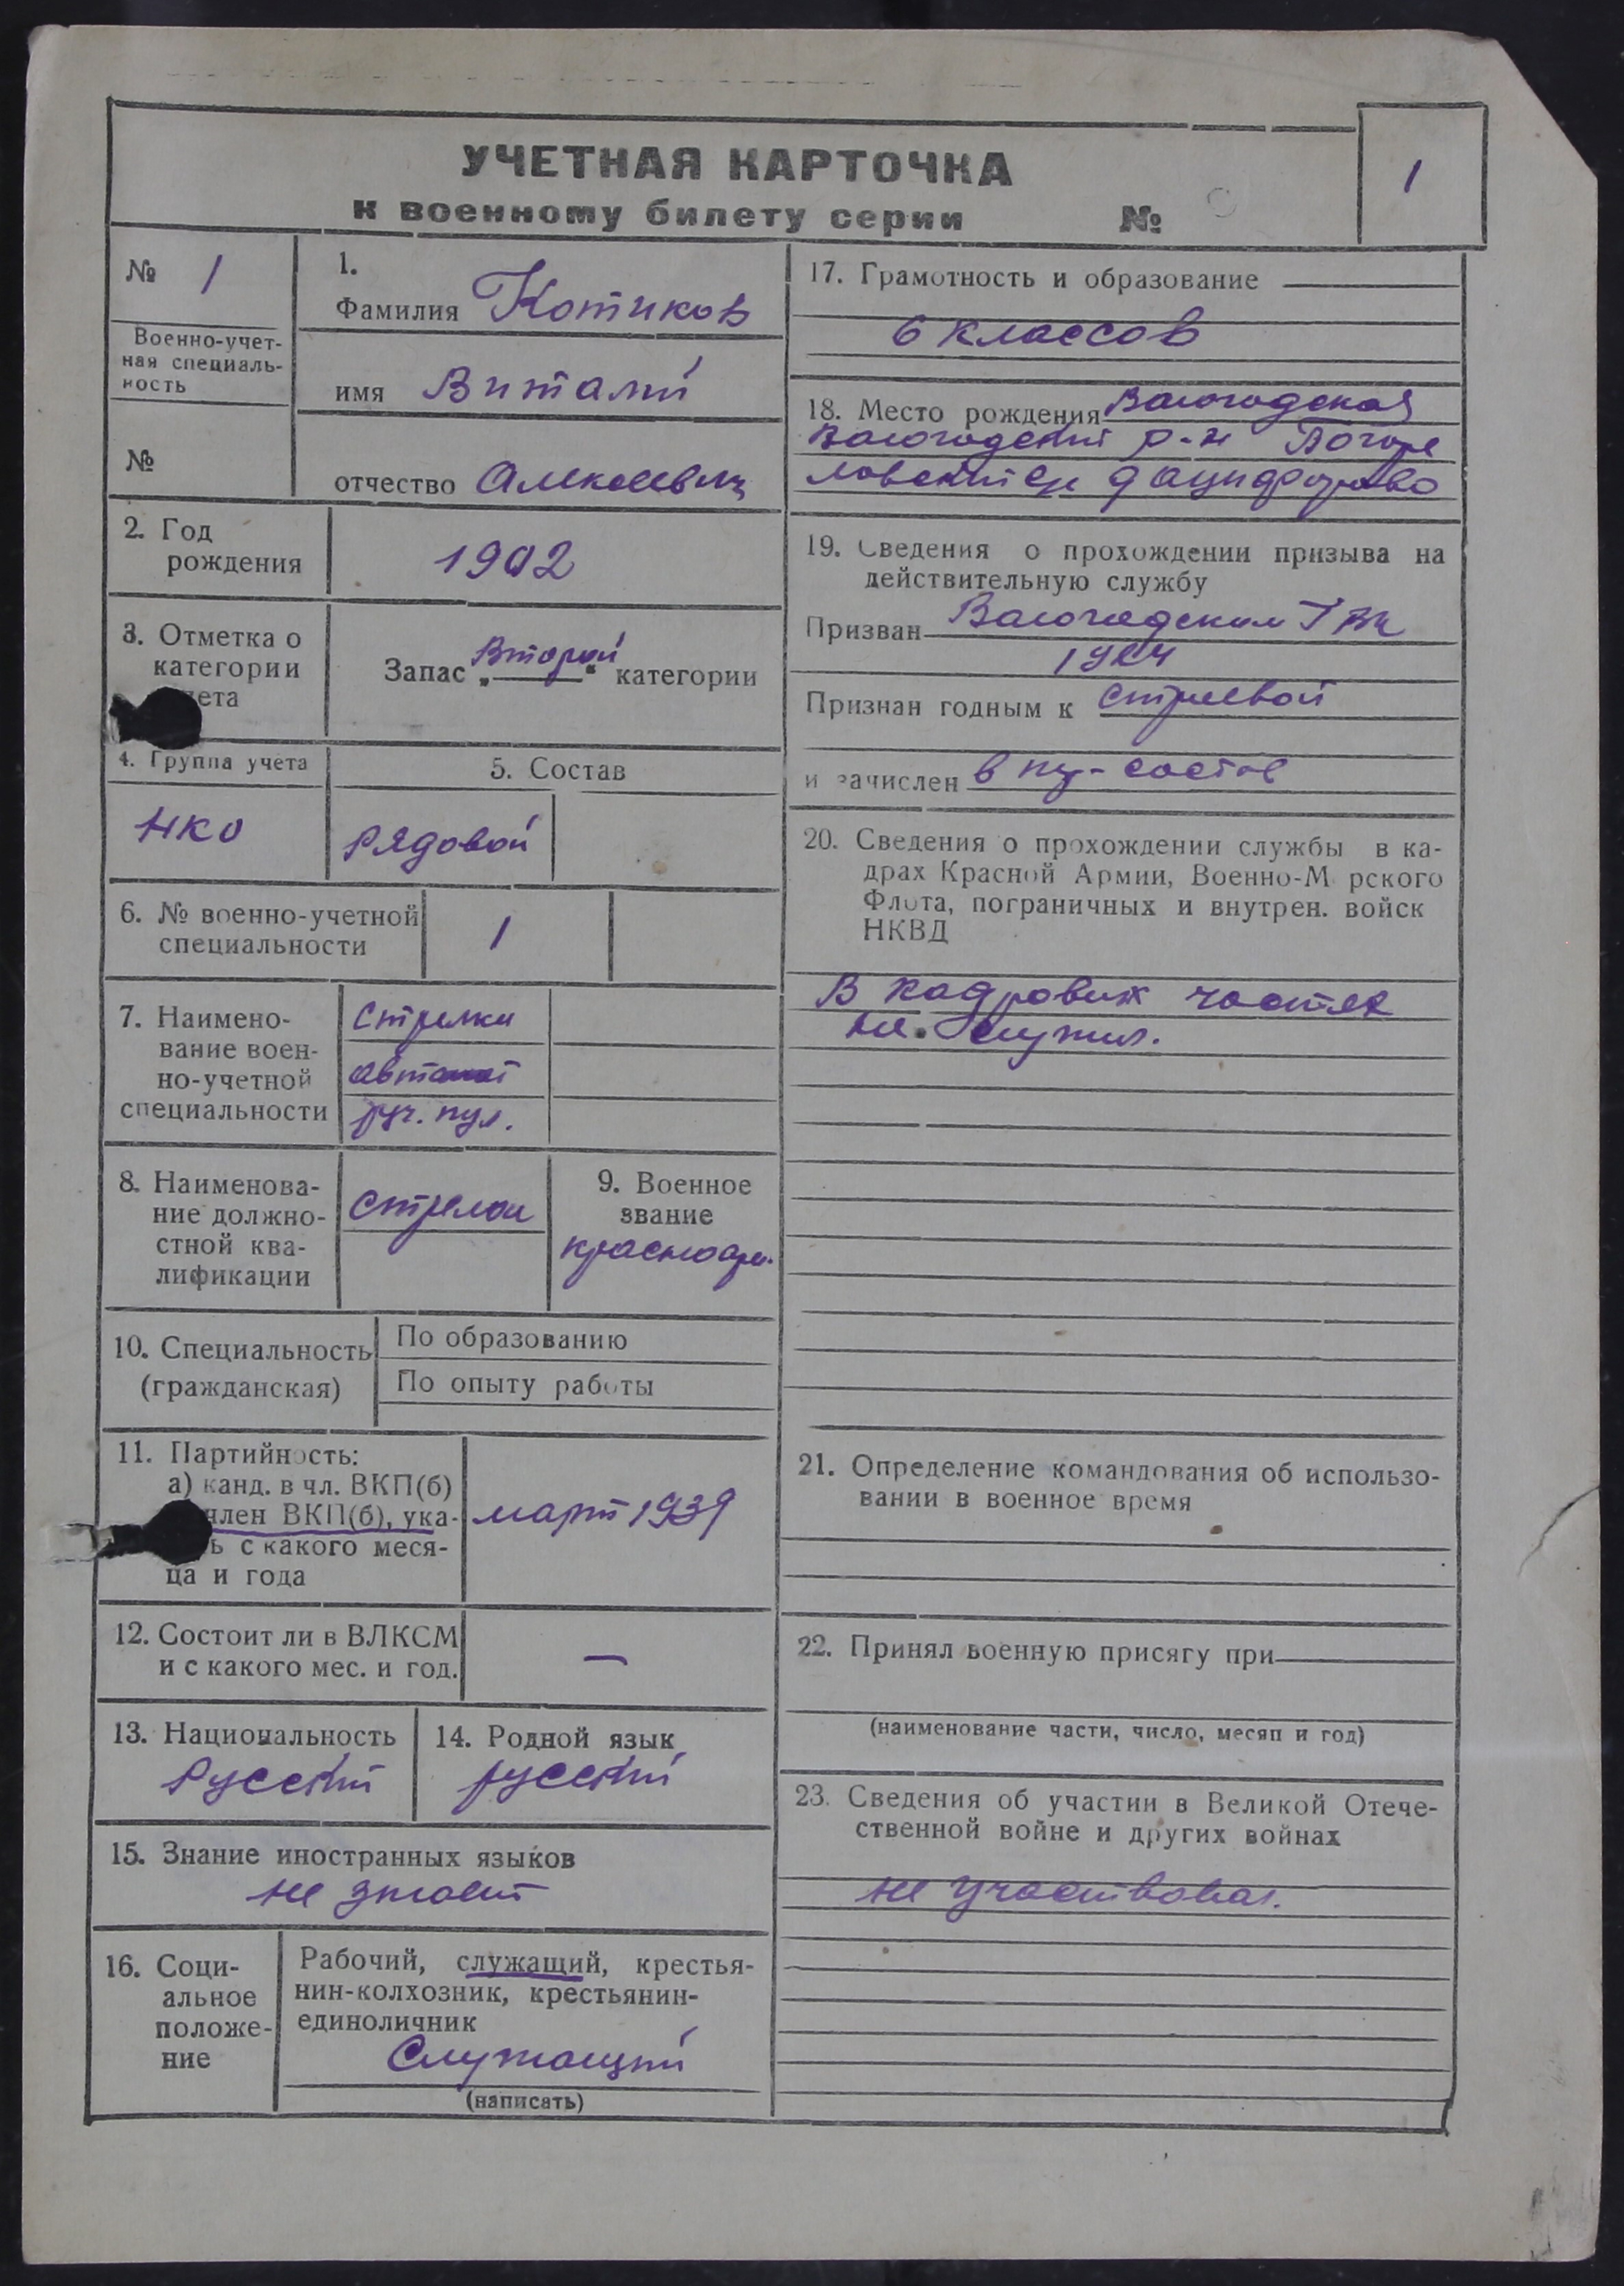 УЧЕТНАЯ КАРТОЧКА
к военному билету серии №
1
№ 1
Военно-учет-
ная специаль-
ность
№
1.
Фамилия Котиков
имя Виталий
отчество Алексеевич
2. Год
рождения
1902
3. Отметка о
категории
ета
Запас „Второй“ категории
4. Группа учета
НКО
5. Состав
Рядовой
6. № военно-учетной
специальности
1
7. Наимено-
вание воен-
но-учетной
специальности
Стрелки
автомат
руч. пул.
8. Наименова-
ние должно-
стной ква-
лификации
Стрелок
9. Военное
звание
красноарм.
10. Специальность
(гражданская)
По образованию
По опыту работы
11. Партийность:
а) канд. в чл. ВКП(б)
член ВКП(б), ука-
ь с какого меся-
ца и года
март 1939
12. Состоит ли в ВЛКСМ
и с какого мес. и год.
—
13. Национальность
Русский
14. Родной язык
русский
15. Знание иностранных языков
не знает
16. Соци-
альное
положе-
ние
Рабочий, служащий, крестья-
нин-колхозник, крестьянин-
единоличник
Служащий
(написать)
17. Грамотность и образование
6 классов
18. Место рождения Вологодская
Вологодский р-н Погоре
ловский с/с д
19. Сведения о прохождении призыва на
действительную службу
Призван Вологодским ГВК
1924
Признан годным к строевой
и зачислен в
20. Сведения о прохождении службы в ка-
драх Красной Армии, Военно-М рского
Флота, пограничных и внутрен. войск
НКВД
В кадровых частях
не служил.
21. Определение командования об использо-
вании в военное время
22. Принял военную присягу при
(наименование части, число, месяц и год)
23. Сведения об участии в Великой Отече-
ственной войне и других войнах
не участвовал.